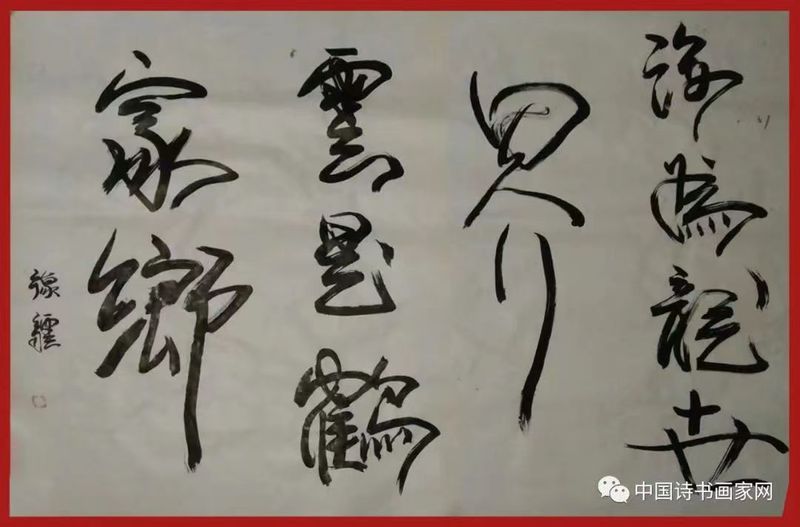 海為龍世
界
雲是鶴
家鄉
豫疆
中国诗书画家网